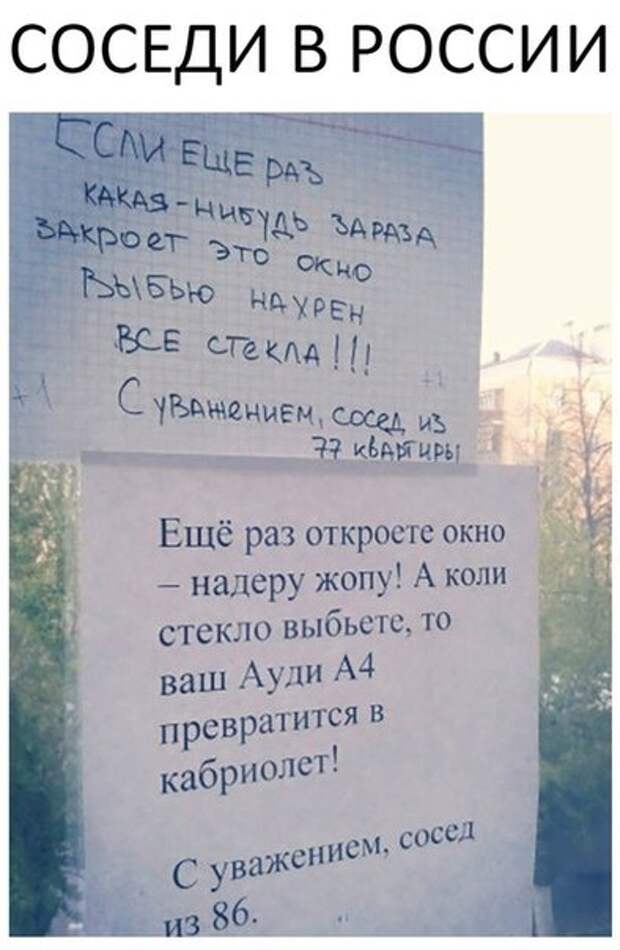 СОСЕДИ В РОССИИ
ЕСЛИ ЕЩЕ РАЗ
КАКАЯ-НИБУДЬ ЗАРАЗА
ЗАКРОЕТ ЭТО ОКНО
ВЫБЬЮ НАХРЕН
ВСЕ СТЕКЛА!!!
+1
+1
С УВАЖЕНИЕМ, СОСЕД ИЗ
77 КВАРТИРЫ
Ещё раз откроете окно
– надеру жопу! А коли
стекло выбьете, то
ваш Ауди А4
превратится в
кабриолет!
С уважением, сосед
из 86.